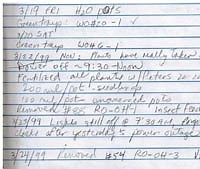 3/19 FRI H2O pots
Greentrays: WO#10-1 ✓
3/20 SAT
Greentrays WO#6-1
3/22/99 Mon: Plants have really taken
off ~9:30-Noon
Fertilized all plants w/ Peters 20
200 ml/pot - seedlings
100 ml/pot - uncovered pots
Removed #85 RO-OH-1 Insect
3/23/99 Lights still off @ 7:30 AM,
clocks after yesterday's power outage
3/24/99 Removed #54 RO-OH-3